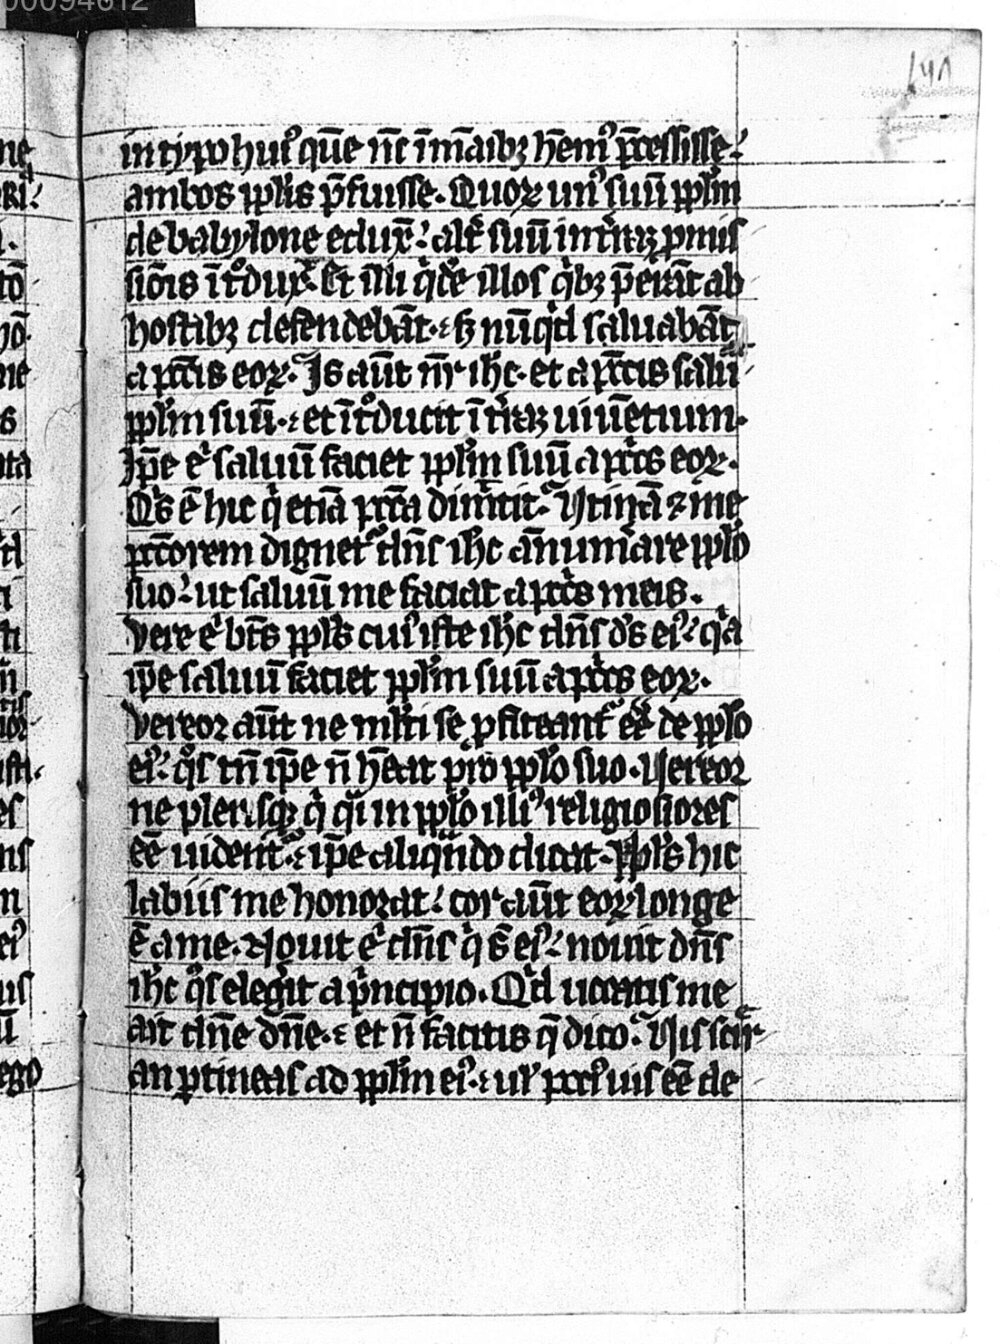 00094612
in tẏpo huiꝰ quē nūc ī māibꝫ hēmꝰ p̄cessisse.
ambos ppl̄is p̄fuisse. Quoꝝ unꝰ suū ppl̄m
de babylone eduxͭ: alt̾ suū in tr̄aꝫ ꝓmis
siōis ītͦduxͭ. Et illi qͥdē illos qͥbꝫ p̄erāt ab
hostibꝫ defendebāt. sꝫ nūqͥd saluabāt
a pctīs eoꝝ. Is aūt nr̄ ih̄c. et a pctīs saluͣ
ppl̄m suū. et ītͦducit ī tr̄aꝫ uiuētium.
Ip̄e eͥ saluū faciet ppl̄m suū a pctīs eoꝝ.
Qͥs ē hic qͥ etiā pctā dimͥttit. Vtinā ⁊ me
pctōrem dignetͬ dn̄s ih̄c ānumͬare ppl̄o
suo: ut saluū me faciat a pctīs meis.
Vere eͥ bt̄s ppl̄s cuiꝰ iste ih̄c dn̄s ds̄ eiꝰ: qͥa
ip̄e saluū faciet ppl̄m suū a pctīs eoꝝ.
Vereor aūt ne ml̄ti se ꝓfiteantͬ eē de ppl̄o
eiꝰ: qͦs tn̄ ip̄e n̄ hēat pro ppl̄o suo. Vereor
ne plerisqꝫ qͥ qͣi in ppl̄o illiꝰ religiosiores
eē uidentͬ. ip̄e aliqn̄do dicat. Ppl̄s hic
labiis me honorat: cor aūt eoꝝ longe
ē a me. Nouit eͥ dn̄s qͥ sͭ eiꝰ: nouit dn̄s
ih̄c qͦs elegͥt a pͥncipio. Qͥd uocatis me
ait dn̄e dn̄e. et n̄ facitis q̄ dico. Vis scirͤ
an ꝑtineas ad ppl̄m eiꝰ. ul̾ pociꝰ uis eē de